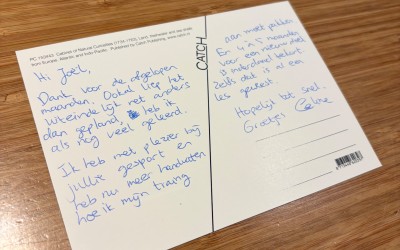 PC 163643 Cabinet of Natural Curiosities (1734-1765), Land,
from Europe, Atlantic and Indo-Pacific Published by Catch Publishing,
Hi Joël,
Dank voor de afgelopen
maanden. Ookal liep het
uiteindelijk net anders
dan gepland, heb ik
als nog veel geleerd.
Ik heb met plezier bij
jullie gesport en
heb nu meer handvatten
hoe ik mijn
CATCH
aan moet pakken
En 4 maanden
voor een nieuwe doel
is
zelfs dat is al een
les geweest.
Hopelijk tot snel.
Groetjes Celine